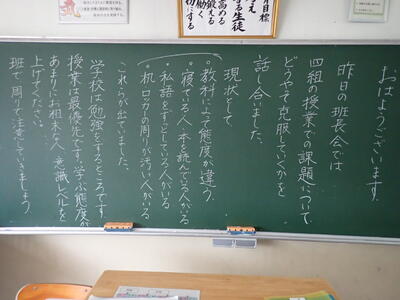 おはようございます。
昨日の班長会では
四組の授業での課題について
どうやって克服していくかを
話し合いました。
現状として
・教科によって態度が違う。
・寝ている人、本を読んでいる人がいる
・私語をずっとしている人がいる
・机、ロッカの周りが汚い人がいる
これらが出ていました。
学校は勉強をするところです。
授業は最優先です。学ぶ態度が
あまりにお粗末な人、意識レベルを
上げてください。
班で周りで注意していきましょう